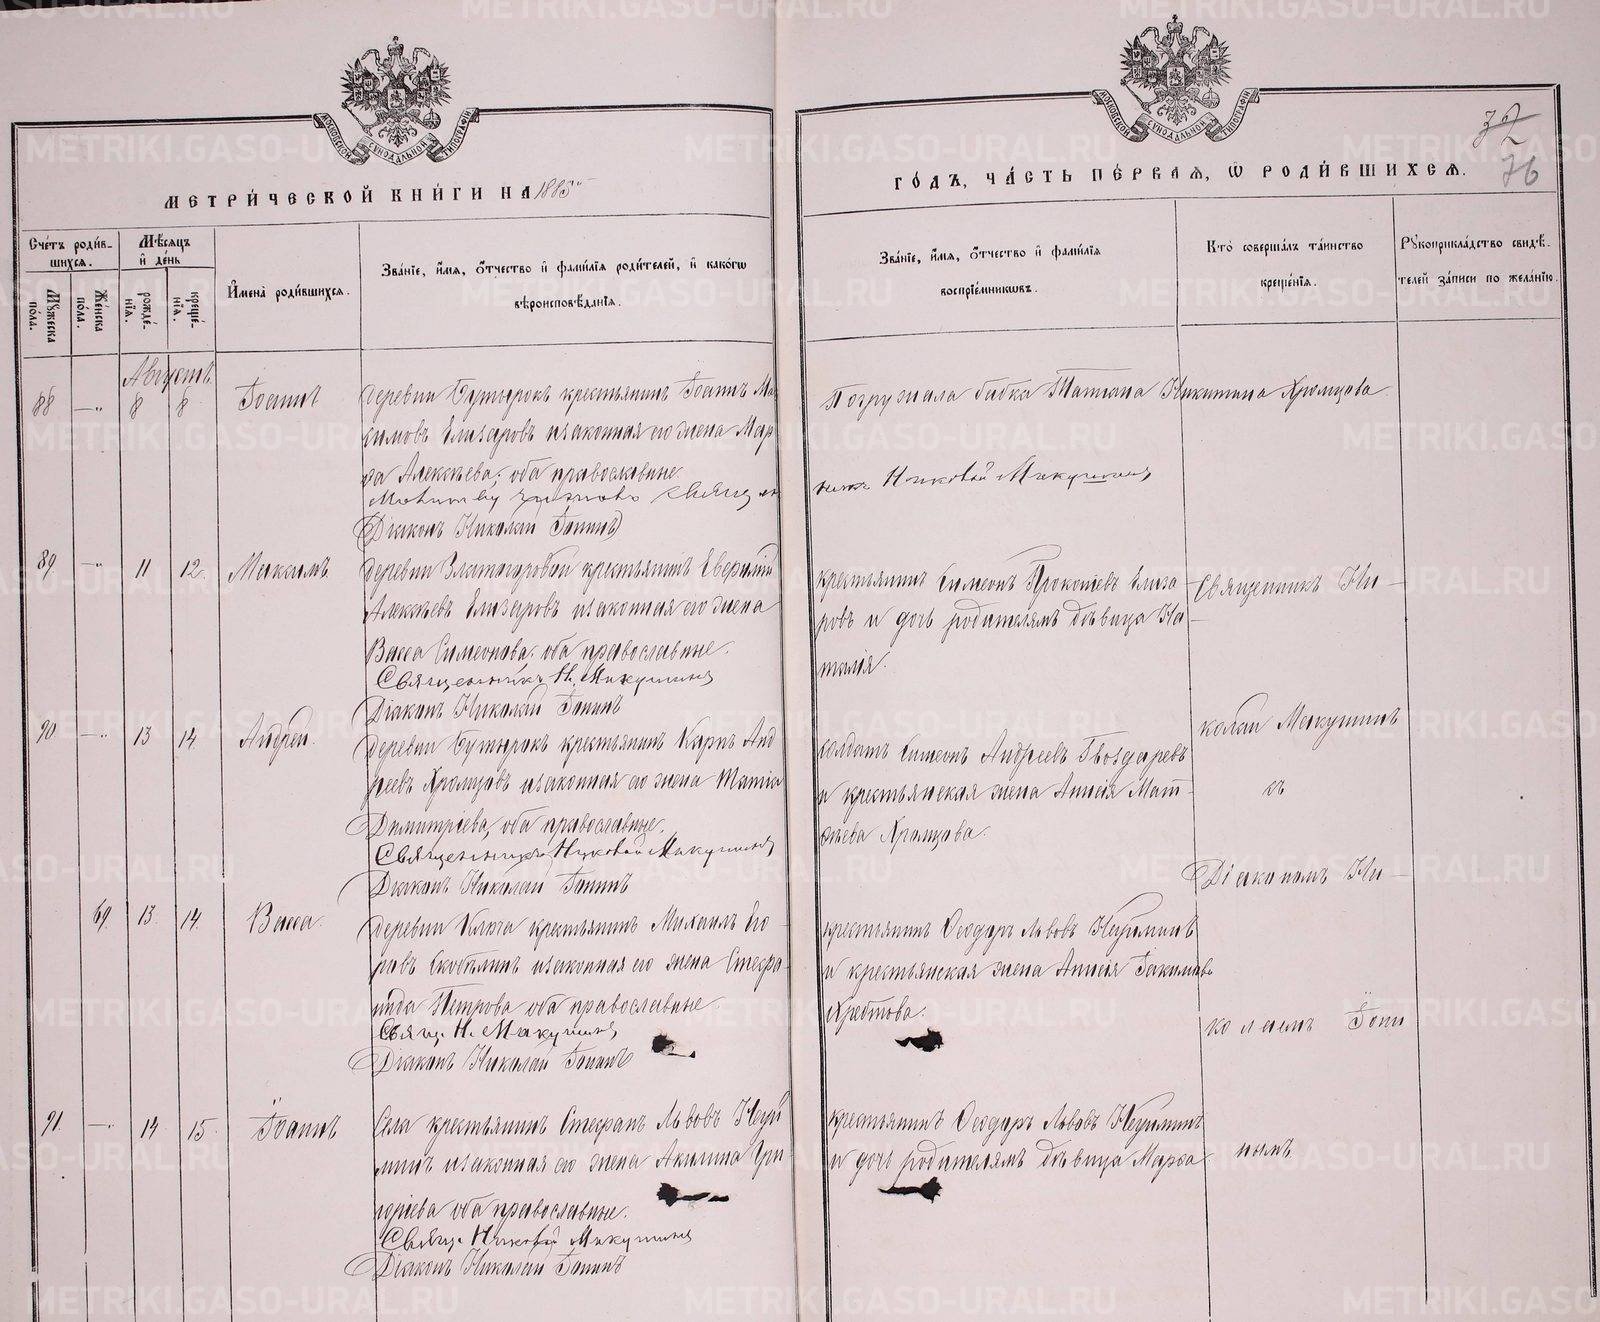 МОСКОВСКОЙ СѴНОДАЛЬНОЙ ТИПОГРАФІИ
МОСКОВСКОЙ СѴНОДАЛЬНОЙ ТИПОГРАФІИ
МЕТРИ́ЧЕСКОЙ КНИ́ГИ НА 1885
ГО́ДЪ, ЧА́СТЬ ПЕ́РВАѦ, Ѡ РОДИ́ВШИХСѦ.
76
Сче́тъ роди́в-
шихсѧ.
Мѣ́сѧцъ
и де́нь
Мꙋ́жеска по́ла.
Же́нска по́ла.
рожде́-
нїѧ.
креще́-
нїѧ.
Имена̀ роди́вшихсѧ.
Зва́нїе, и́мѧ, о́тчество и фами́лїѧ роди́телей, и како́гѡ
вѣроисповѣ́данїѧ.
Зва́нїе, и́мѧ, о́тчество и фами́лїѧ
воспрїе́мникѡвъ.
Кто̀ соверша́лъ та́инство
креще́нїѧ.
Рꙋкоприкла́дство свидѣ́-
телей за́писи по жела́нїю.
Августъ.
88 —„ 8 8 Іоаннъ
деревни Бутырокъ крестьянинъ Іоаннъ Ма-
симовъ Елизаровъ и законная его жена Мар-
ѳа Алексѣева; оба православные
Молитву
Діаконъ Николай Іонинъ
Погружала бабка Татіана Никитина Хромцова
Николай Микушинъ
89 —„ 11 12. Максимъ.
деревни Златогоровой крестьянинъ Евфимій
Алексѣевъ Елизаровъ и законная его жена
Васса Симеонова. оба православные.
Священникъ Н. Микушинъ
Діаконъ Николай Іонинъ
крестьянинъ Симеонъ Прокопіевъ Елиза-
ровъ и дочь родителямъ дѣвица На-
талія.
Священникъ Ни-
90 —„ 13 14. Андрей.
деревни Бутырокъ крестьянинъ Карпъ Анд-
реевъ Хромцовъ и законная его жена Татіа
Димитріева, оба православные.
Священникъ Николай Микушинъ
Діаконъ Николай Іонинъ
солдатъ Симеонъ Андреевъ Гвоздаревъ
и крестьянская жена Анисія Мат-
ѳѣева Хромцова.
колай Микушинъ
съ
Діакономъ Ни-
69. 13. 14. Васса.
деревни Ключа крестьянинъ Михаилъ Его-
ровъ Скобѣлинъ и законная его жена Стефа-
нида Петрова оба православные.
Свящ. Н. Микушинъ
Діаконъ Николай Іонинъ
крестьянинъ Ѳеодоръ Львовъ Неуйминъ
и крестьянская жена Анисія Іакимова
Хребтова.
колаемъ Іони
91. —„ 14 15. Іоаннъ
Села крестьянинъ Стефанъ Львовъ Неуй-
минъ и законная его жена Акилина Гри-
горіева оба православные.
Свящ. Николай Микушинъ
Діаконъ Николай Іонинъ
крестьянинъ Ѳеодоръ Львовъ Неуйминъ
и дочь родителямъ дѣвица Марѳа
нымъ
METRIKI.GASO-URAL.RU